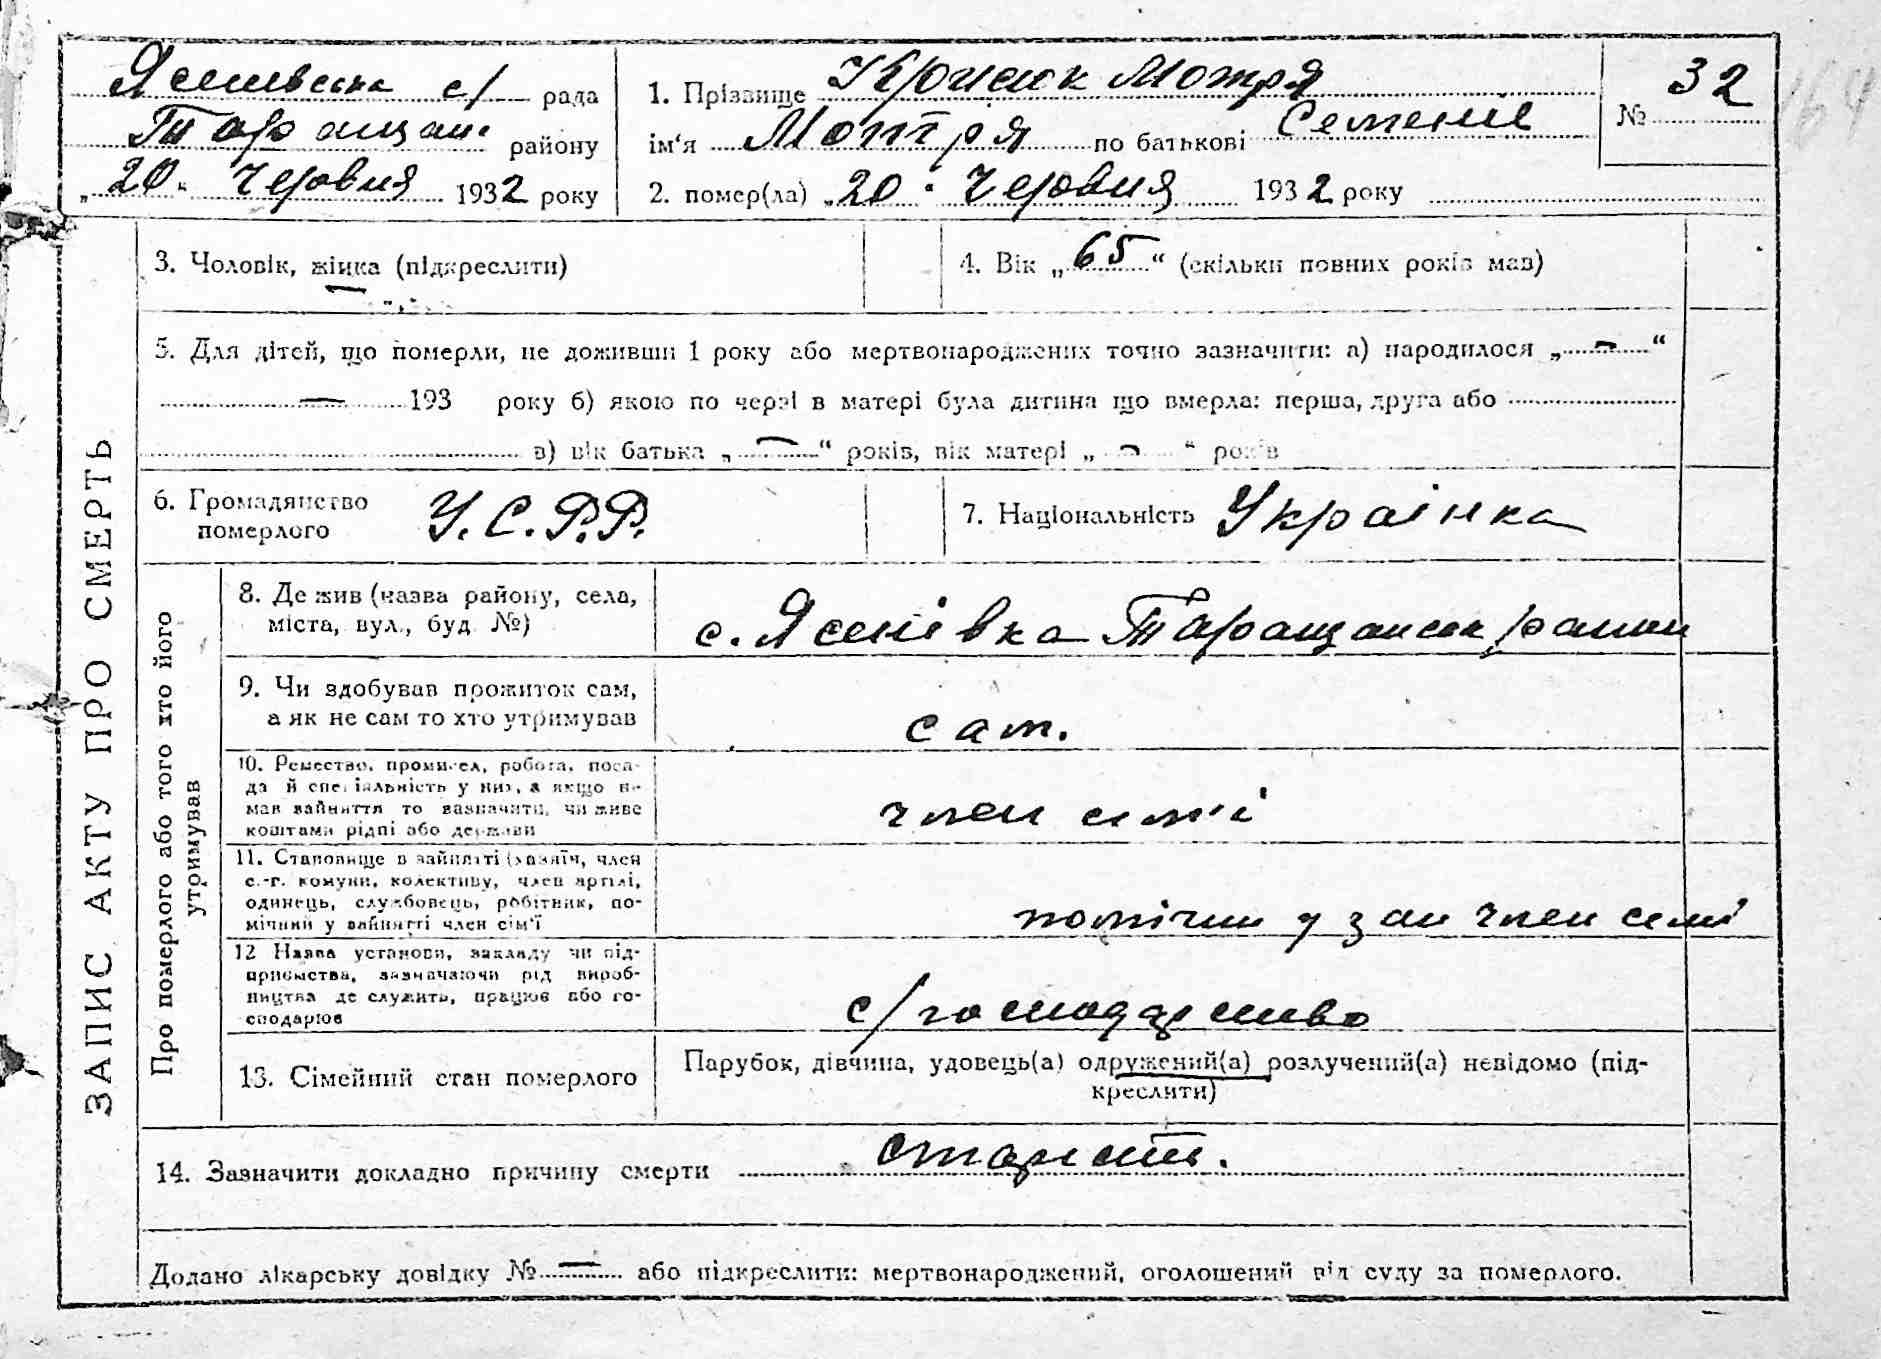 Ясенівська с/ рада
Таращан. району
„20“ Червня 1932 року
1. Прізвище Крисюк Мотря
ім‘я Мотря по батькові Семенів
2. помер(ла) „20 · Червня 1932 року
№ 32
164
ЗАПИС АКТУ ПРО СМЕРТЬ
3. Чоловік, жінка (підкреслити)
4. Вік „65“ (скільки повних років мав)
5. Для дітей, що померли, не доживши 1 року або мертвонароджених точно зазначити: а) народилося „ — “
— 193 року б) якою по черзі в матері була дитина що вмерла: перша, друга або
в) вік батька „ — “ років, вік матері „ — “ років
6. Громадянство
померлого
У.С.Р.Р.
7. Національність Украінка
Про померлого або того хто його
утримував
8. Де жив (назва району, села,
міста, вул., буд. №)
с. Ясенівка Таращанськ району
9. Чи здобував прожиток сам,
а як не сам то хто утримував
сам.
10. Ремество, промисел, робота, поса-
да й спеціяльність у них, а якщо не
мав зайняття то зазначити, чи живе
коштами рідні або держави
член сім'і
11. Становище в зайнятті (хазяїн, член
с.-г. комуни, колективу, член артілі,
одинець, службовець, робітник, по-
мічний у зайнятті член сім‘ї
помічни у зан член семі
12 Назва установи, закладу чи під-
приємства, зазначаючи рід вироб-
ництва де служить, працює або го-
сподарює
с/господарство
13. Сімейний стан померлого
Парубок, дівчина, удовець(а) одружений(а) розлучений(а) невідомо (під-
креслити)
14. Зазначити докладно причину смерти старість.
Додано лікарську довідку № — або підкреслити: мертвонароджений, оголошений від суду за померлого.